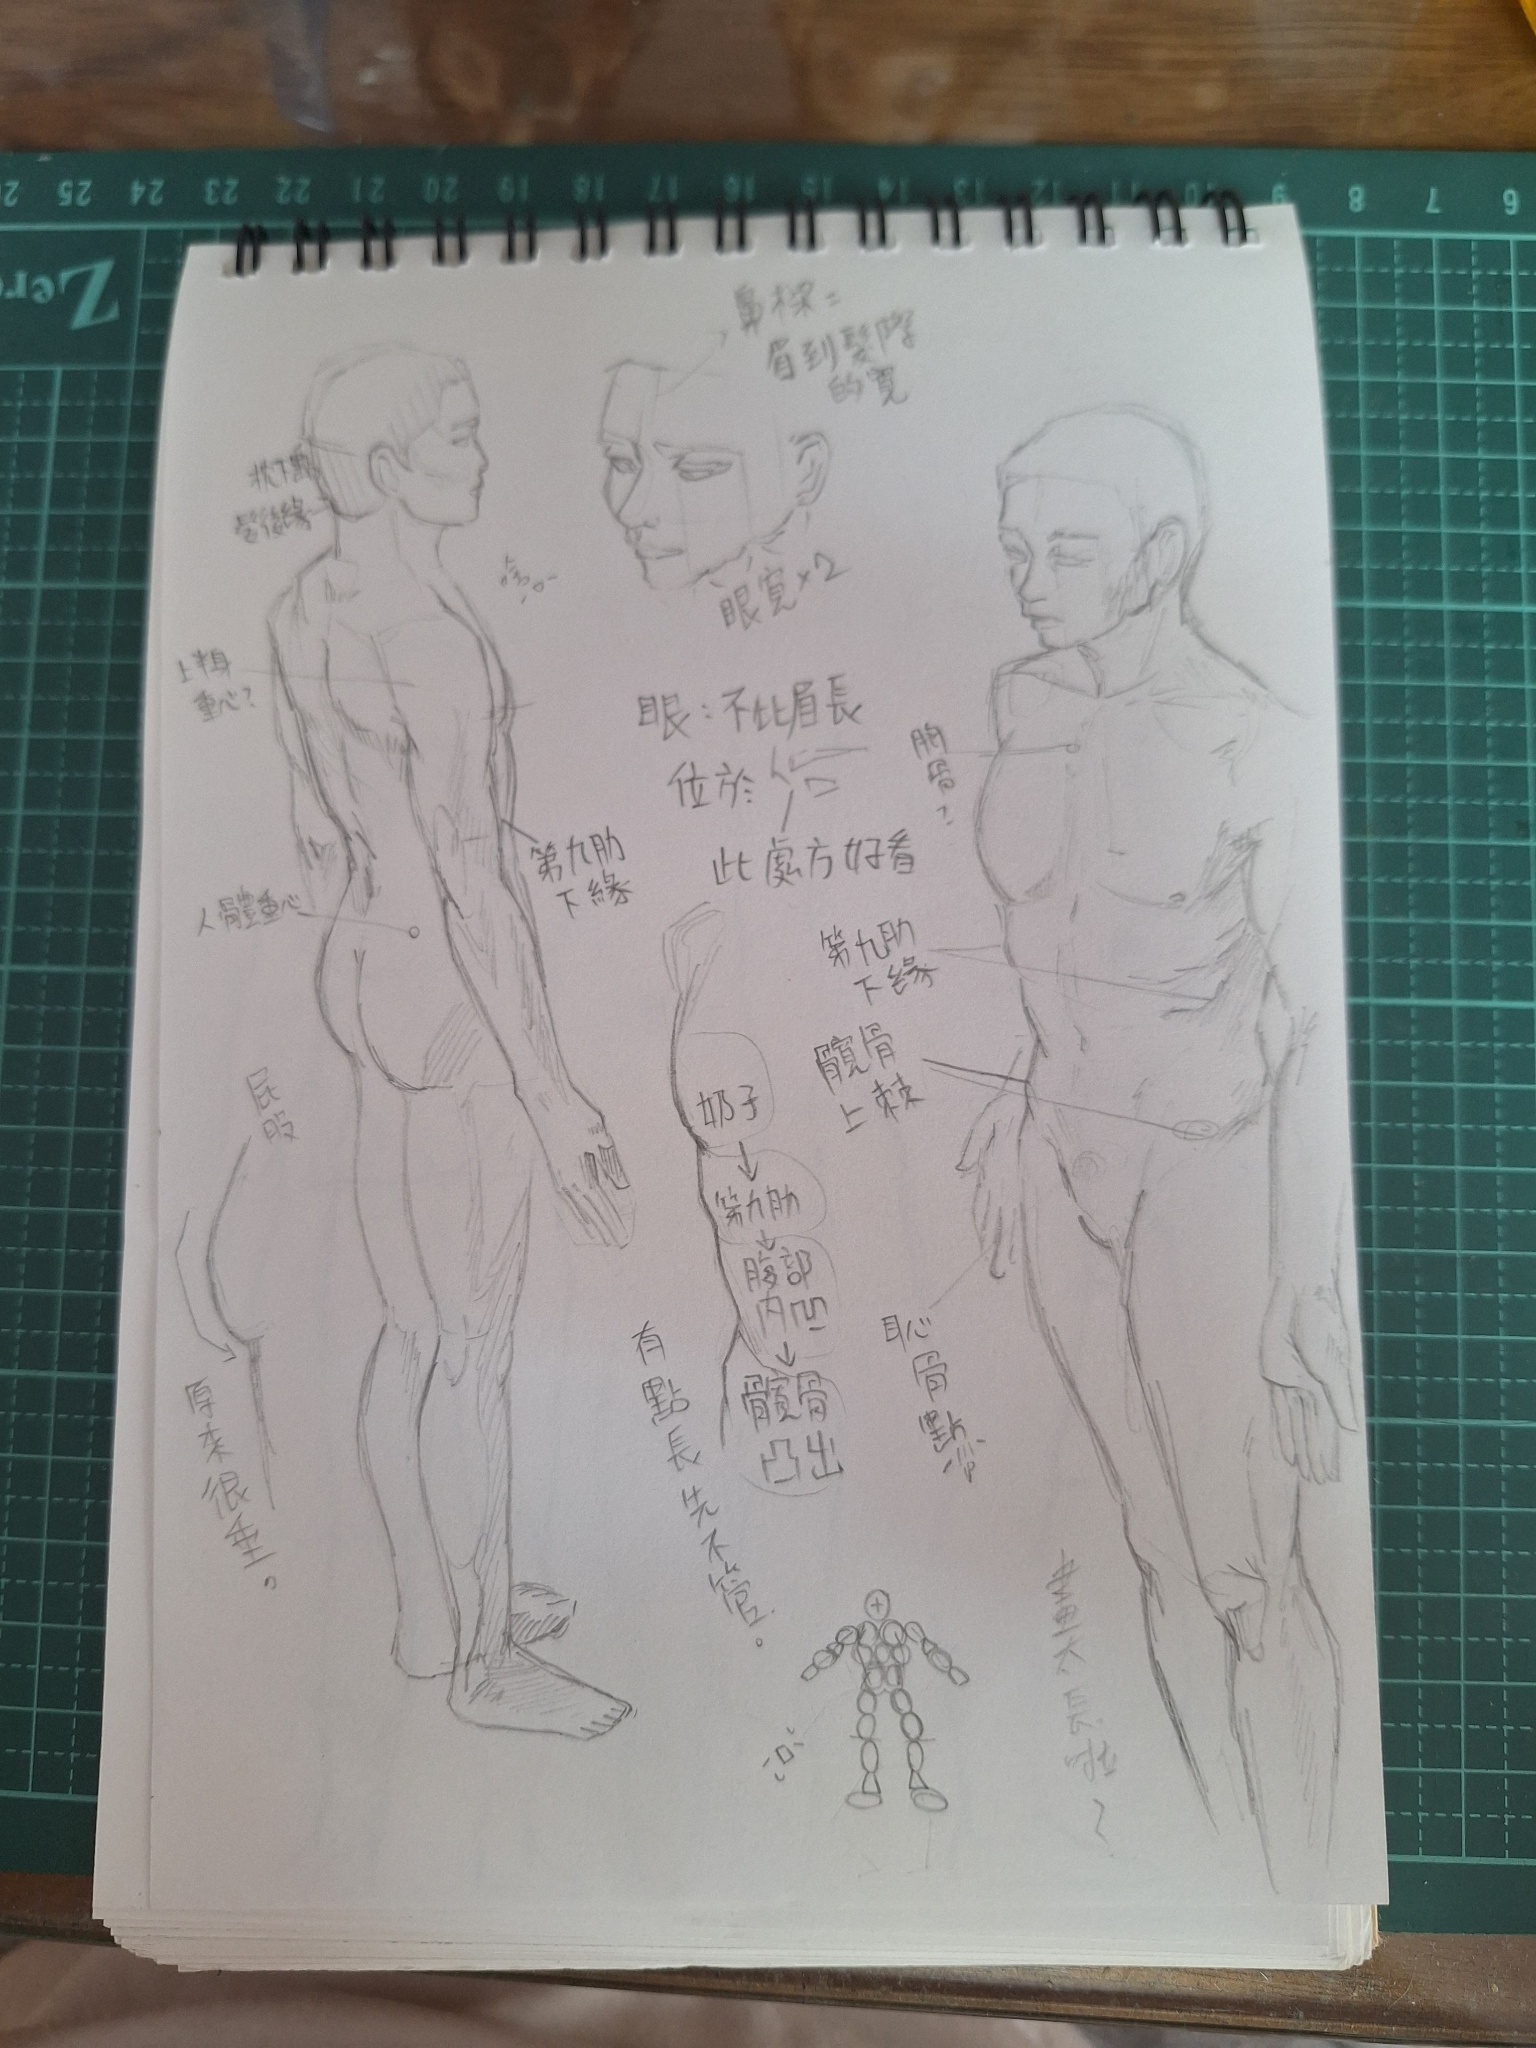 鼻樑：
眉到髮際
的寬
眼寬×2
上半身
重心？
眼：不比眉長
位於
此處方好看
胸骨？
第九肋
下緣
人體重心
第九肋
下緣
髖骨
上棘
屁股
原來很垂。
奶子
第九肋
腹部
內凹
髖骨
凸出
有點長先不管。
恥骨點
26 25 24 23 22 21 20 19 18 17 16 15 14 13 12 11 10 9 8 7 6